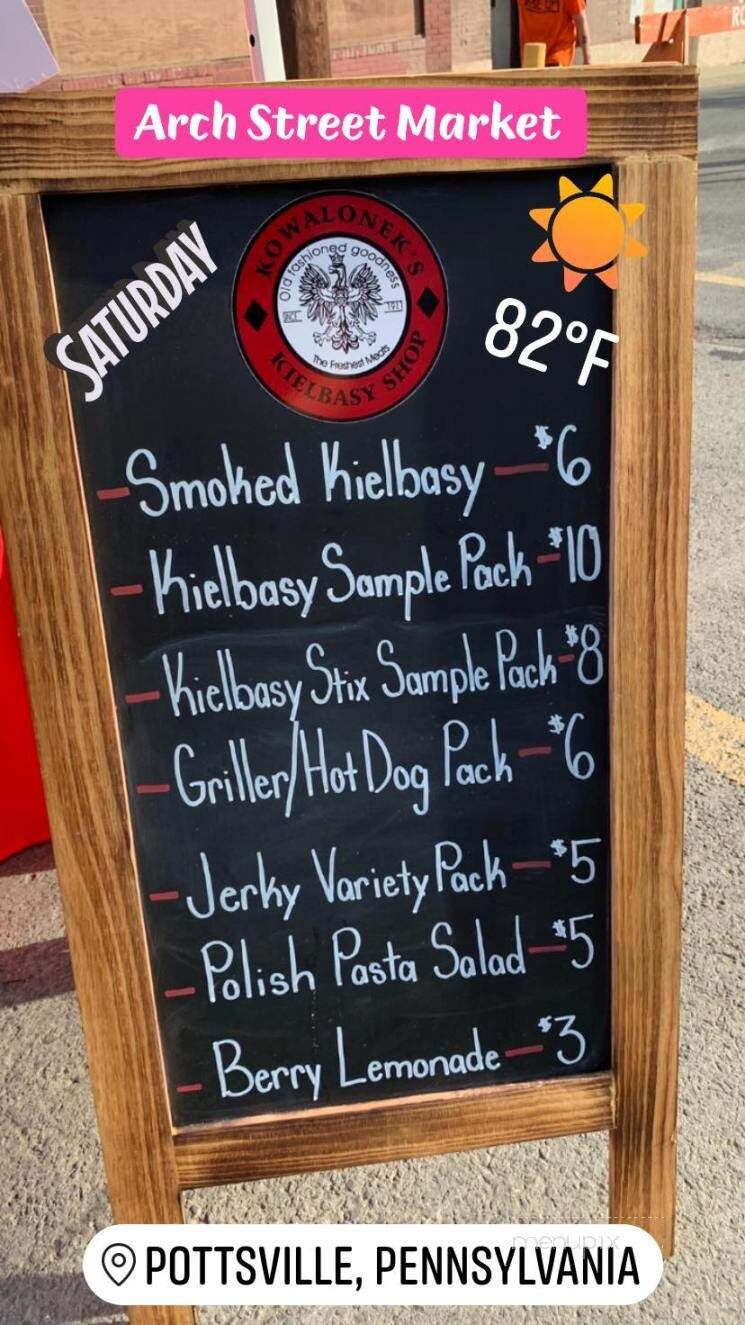 Arch Street Market
SATURDAY
KOWALONEK'S
Old fashioned goodness
SINCE 1911
The Freshest Meats
KIELBASY SHOP
82°F
- Smoked Kielbasy - $6
- Kielbasy Sample Pack - $10
- Kielbasy Stix Sample Pack - $8
- Griller/Hot Dog Pack - $6
- Jerky Variety Pack - $5
- Polish Pasta Salad - $5
- Berry Lemonade - $3
menupix
POTTSVILLE, PENNSYLVANIA